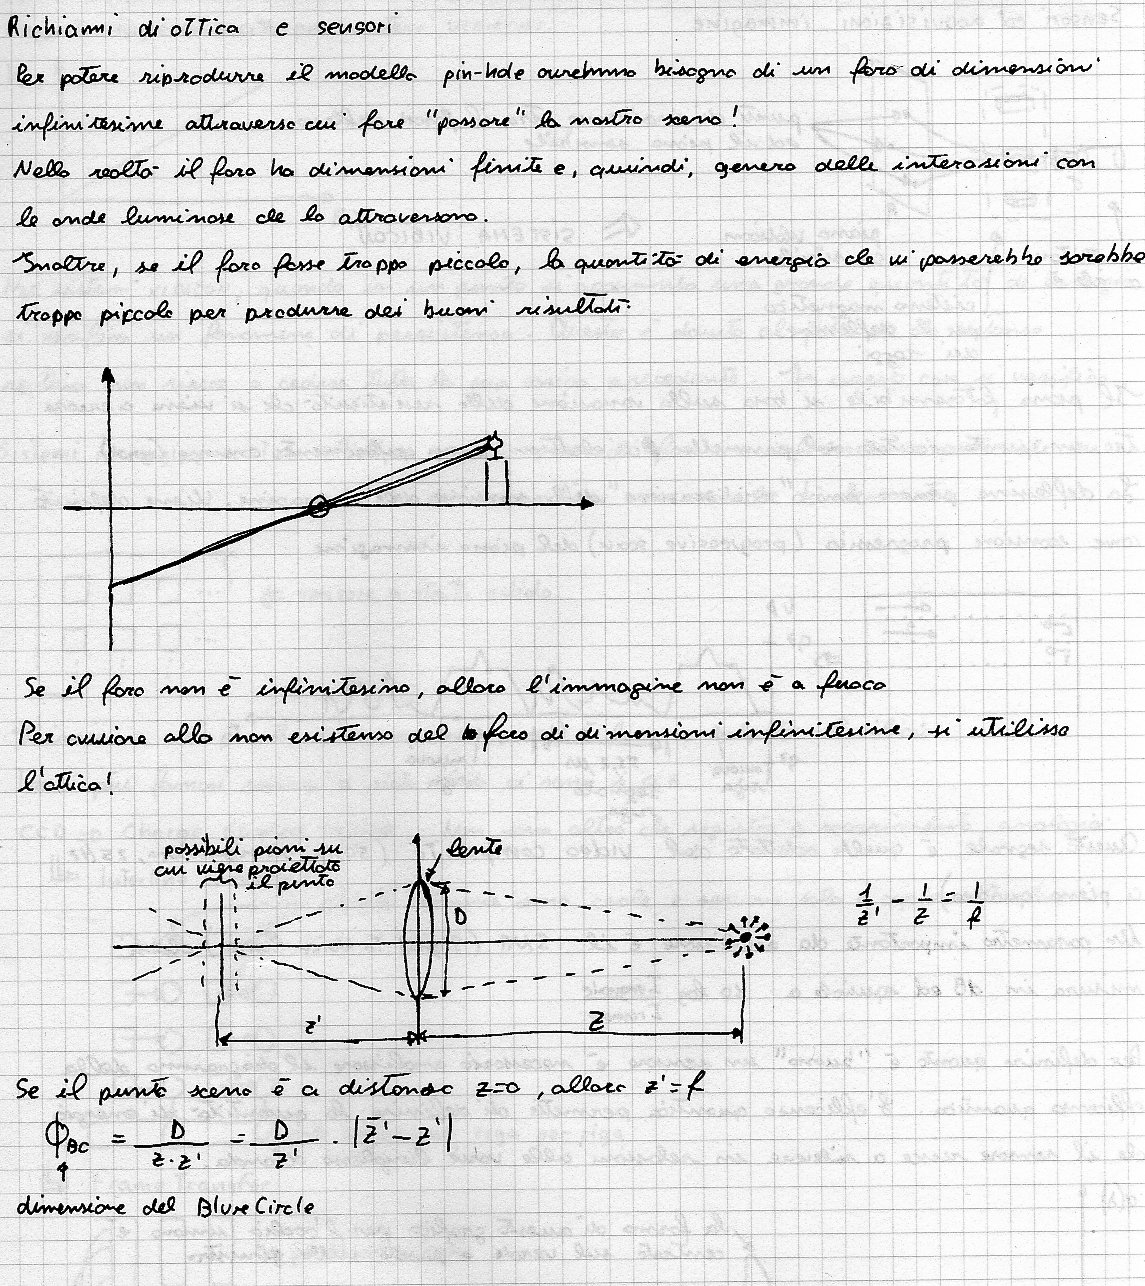 Richiami di ottica e sensori
Per potere riprodurre il modello pin-hole avremmo bisogno di un foro di dimensioni
infinitesime attraverso cui fare "passare" la nostra scena!
Nella realtà il foro ha dimensioni finite e, quindi, genera delle interazioni con
le onde luminose che lo attraversano.
Inoltre, se il foro fosse troppo piccolo, la quantità di energia che vi passerebbe sarebbe
troppo piccola per produrre dei buoni risultati.
Se il foro non è infinitesimo, allora l'immagine non è a fuoco
Per ovviare alla non esistenza del foro di dimensioni infinitesime, si utilizza
l'ottica!
possibili piani su
cui viene proiettato
il punto
lente
D
1/z' - 1/z = 1/f
z'
Z
Se il punto scena è a distanza z=0, allora z'=f
ϕBC = D/(z·z') = D/z' · |z̄'-z'|
dimensione del Blure Circle